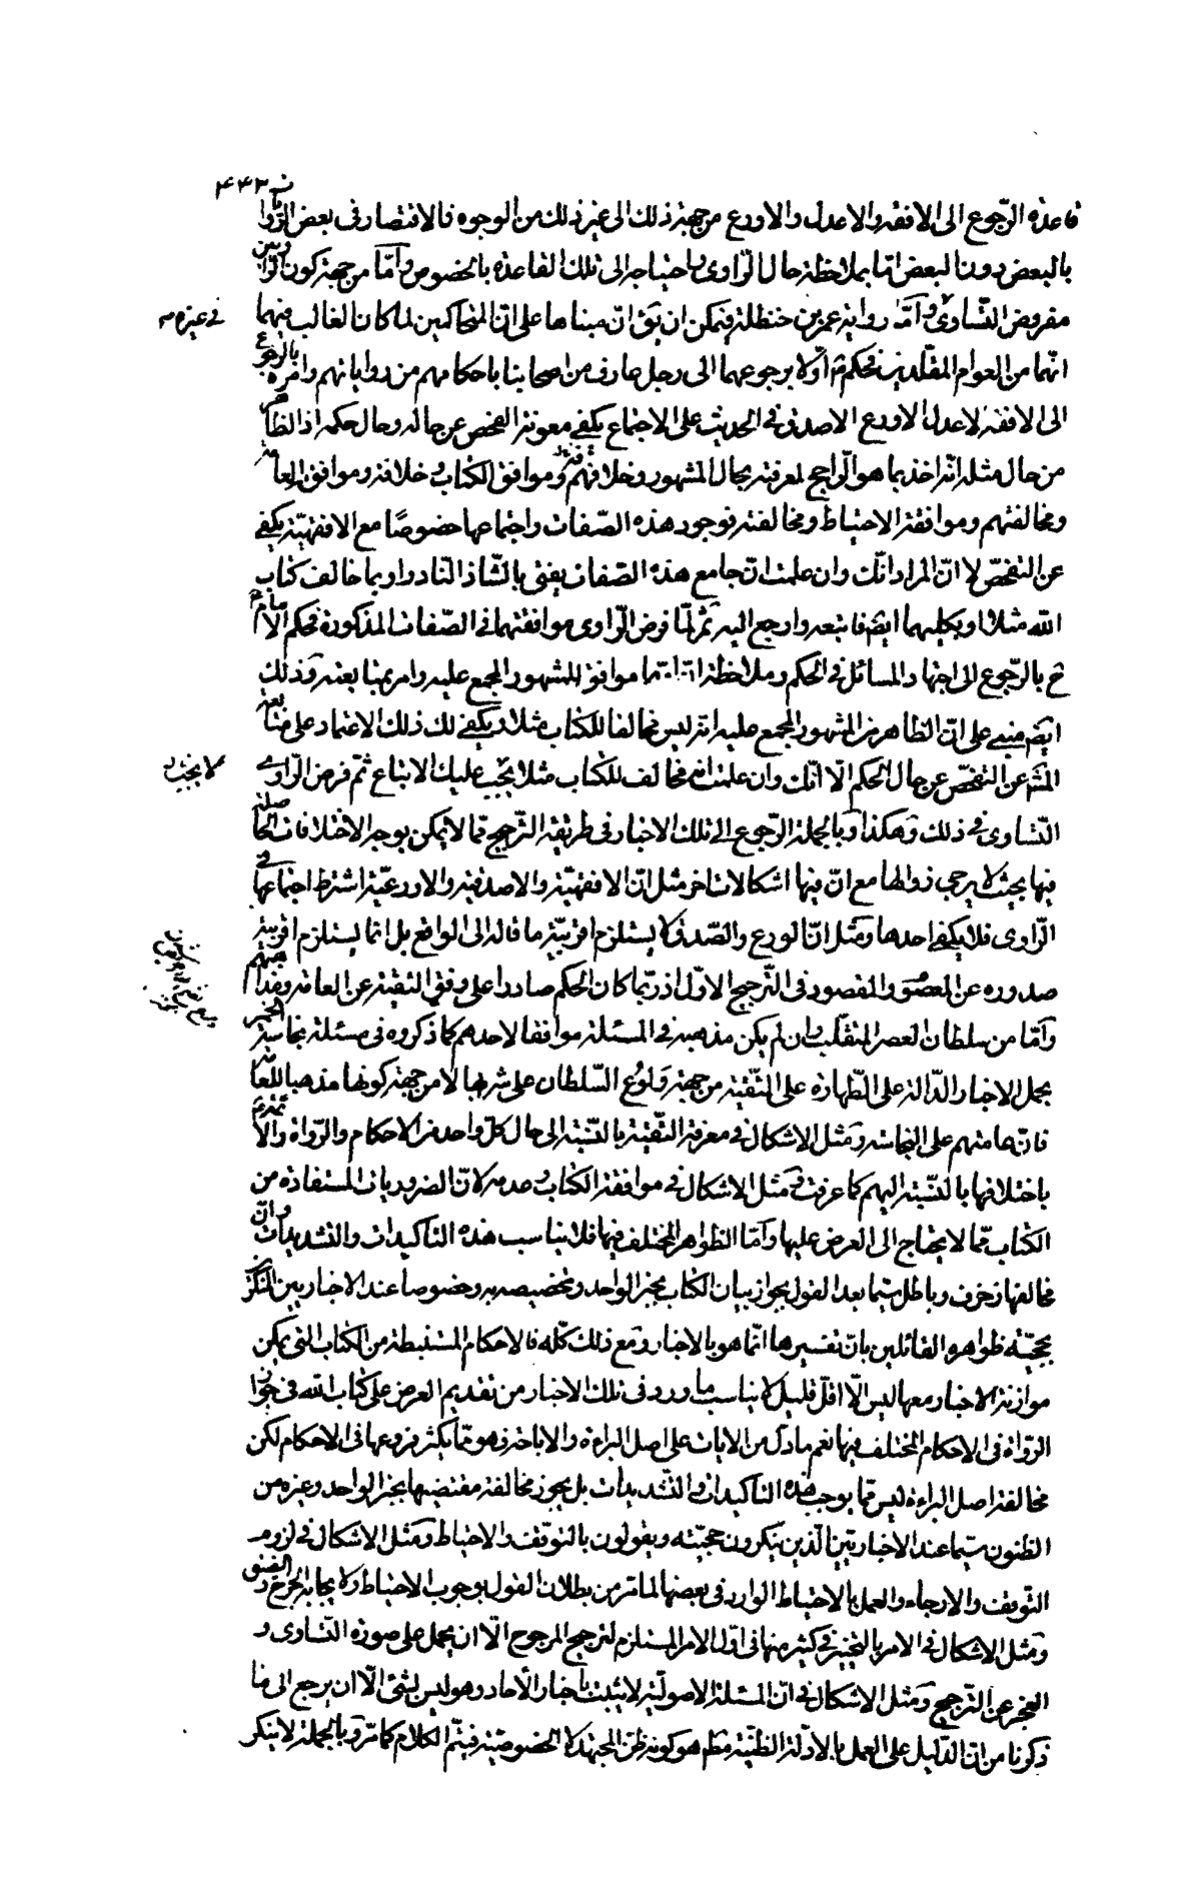 ۴۴۳
قاعدة الرّجوع الى الافقه والاعدل والاورع من جهة ذلك الى غير ذلك من الوجوه فالاقتصار فى بعض الرّوا
بالبعض دون البعض امّا بملاحظة حال الرّاوى واحتياجه الى تلك القاعدة بالخصوص وامّا من جهة كون الرّاويين
مفروض التّساوى وامّا رواية عمر بن حنظلة فيمكن ان يق انّ مبناها على انّ المتحاكمين لما كان الغالب فيهما
فى غيره
انّهما من العوام المقلّدين فحكم ع اوّلا برجوعهما الى رجل عارف من اصحابنا باحكامهم من رواياتهم وامره بالرجوع
الى الافقه الاعدل الاورع الاصدق فى الحديث على الاجتماع يكفى معونة الفحص عن حاله وحال حكمه اذ الظاهر
من حال مثله انّه اخذ بما هو الرّاجح لمعرفته بحال المشهور وخلافهم وموافق الكتاب وخلافه وموافقة العامة
ومخالفتهم وموافقة الاحتياط ومخالفته فوجود هذه الصّفات واجتماعها خصوصًا مع الافقهيّة يكفى
عن التفحّص لا انّ المراد انّك وان علمت انّ جامع هذه الصّفات يفتى بالشّاذ النّادر او بما خالف كتاب
الله مثلا او بكليهما ايضا فاتبعه وارجع اليه ثمّ لمّا فرض الرّاوى موافقتهما فى الصّفات المذكورة فحكم الامام ع
ح بالرّجوع الى اجتهاد المسائل فى الحكم وملاحظة انّ ايّهما موافق للمشهور المجمع عليه وامر بمتابعته وذلك
ايضا مبنى على انّ الظاهر من المشهور المجمع عليه انّه ليس مخالفا للكتاب مثلا ويكفى لك ذلك الاعتماد على متابعة
المشهور عن التفحّص عن حال الحكم الا انّك وان علمت انّه مخالف للكتاب مثلا يجب عليك الاتباع ثمّ فرض الرّاوى
لا يجب
التّساوى فى ذلك وهكذا وبالجملة الرّجوع الى تلك الاخبار فى طريقة التّرجيح ممّا لا يمكن بوجه الاختلافات الحاصلة
فيها بحيث لا يرجى زوالها مع انّ فيها اشكالات اخر مثل انّ الافقهيّة والاصدقية والاورعيّة اشترط اجتماعها فى
الرّاوى فلا يكفى احدها ومثل انّ الورع والصّدق لا يستلزم اقربيّة ما قاله الى الواقع بل انّما يستلزم اقربيّة
صدوره عن المعصوم والمقصود فى التّرجيح الاوّل اذ ربّما كان الحكم صادرا على وفق التقيّة عن العامة وقدامهم
وامّا من سلطان العصر المتقلّب وان لم يكن مذهبه فى المسئلة موافقا لاحدهم كما ذكروه فى مسئلة نجاسة الخمر
بحمل الاخبار الدّالة على الطّهارة على التّقيّة من جهة ولوع السّلطان على شربها لا من جهة كونها مذهبا للعامة
فانّ عامتهم على النجاسة ومثل الاشكال فى معرفة التّقيّة بالنّسبة الى حال كلّ واحد من الاحكام والرّواة والائمة ع
باختلافها بالنّسبة اليهم كما عرفت ومثل الاشكال فى موافقة الكتاب وعدمه لانّ الضروريات المستفادة من
الكتاب ممّا لا يحتاج الى العرض عليها وامّا الظواهر المختلف فيها فلا يناسب هذه التاكيدات والتشديدات وانّ
مخالفها زخرف وباطل سيّما بعد القول بجواز بيان الكتاب بخبر الواحد وتخصيصه به وخصوصا عند الاخباريين المنكرين
بحجيّة ظواهره القائلين بانّ تفسيرها انّما هو بالاخبار ومع ذلك كلّه فالاحكام المستنبطة من الكتاب التى يمكن
موازنة الاخبار معها ليس الّا اقلّ قليل لا يناسب ما ورد فى تلك الاخبار من تقديم العرض على كتاب الله فى جواب
الرّواة فى الاحكام المختلف فيها نعم ما دلّ من الايات على اصل البراءة والاباحة فهو ممّا يكثر فروعها فى الاحكام لكن
مخالفة اصل البراءة ليس ممّا يوجب هذه التاكيدات والتّشديدات بل يجوز مخالفة مقتضيها بخبر الواحد وغيره من
الظنون سيّما عند الاخباريّين الّذين ينكرون حجيّته ويقولون بالتوقّف والاحتياط ومثل الاشكال فى لزوم
التّوقف والارجاء والعمل بالاحتياط الوارد فى بعضها لما مرّ من بطلان القول بوجوب الاحتياط ولايجابه الحرج والضيق
ومثل الاشكال فى الامر بالتّخيير فى كثير منها فى اوّل الامر المستلزم لترجيح المرجوح الّا ان يحمل على صورة التّساوى و
العجز عن التّرجيح ومثل الاشكال فى انّ المسئلة الاصوليّة لا يثبت باخبار الآحاد وهو ليس بشئ الّا ان يرجع الى ما
ذكرنا من انّ الدّليل على العمل بالادلّة الظنّيّة مط هو كونه ظنّ المجتهد لا الخصوصيّة فيتمّ الكلام كما مرّ وبالجملة لا ينكر